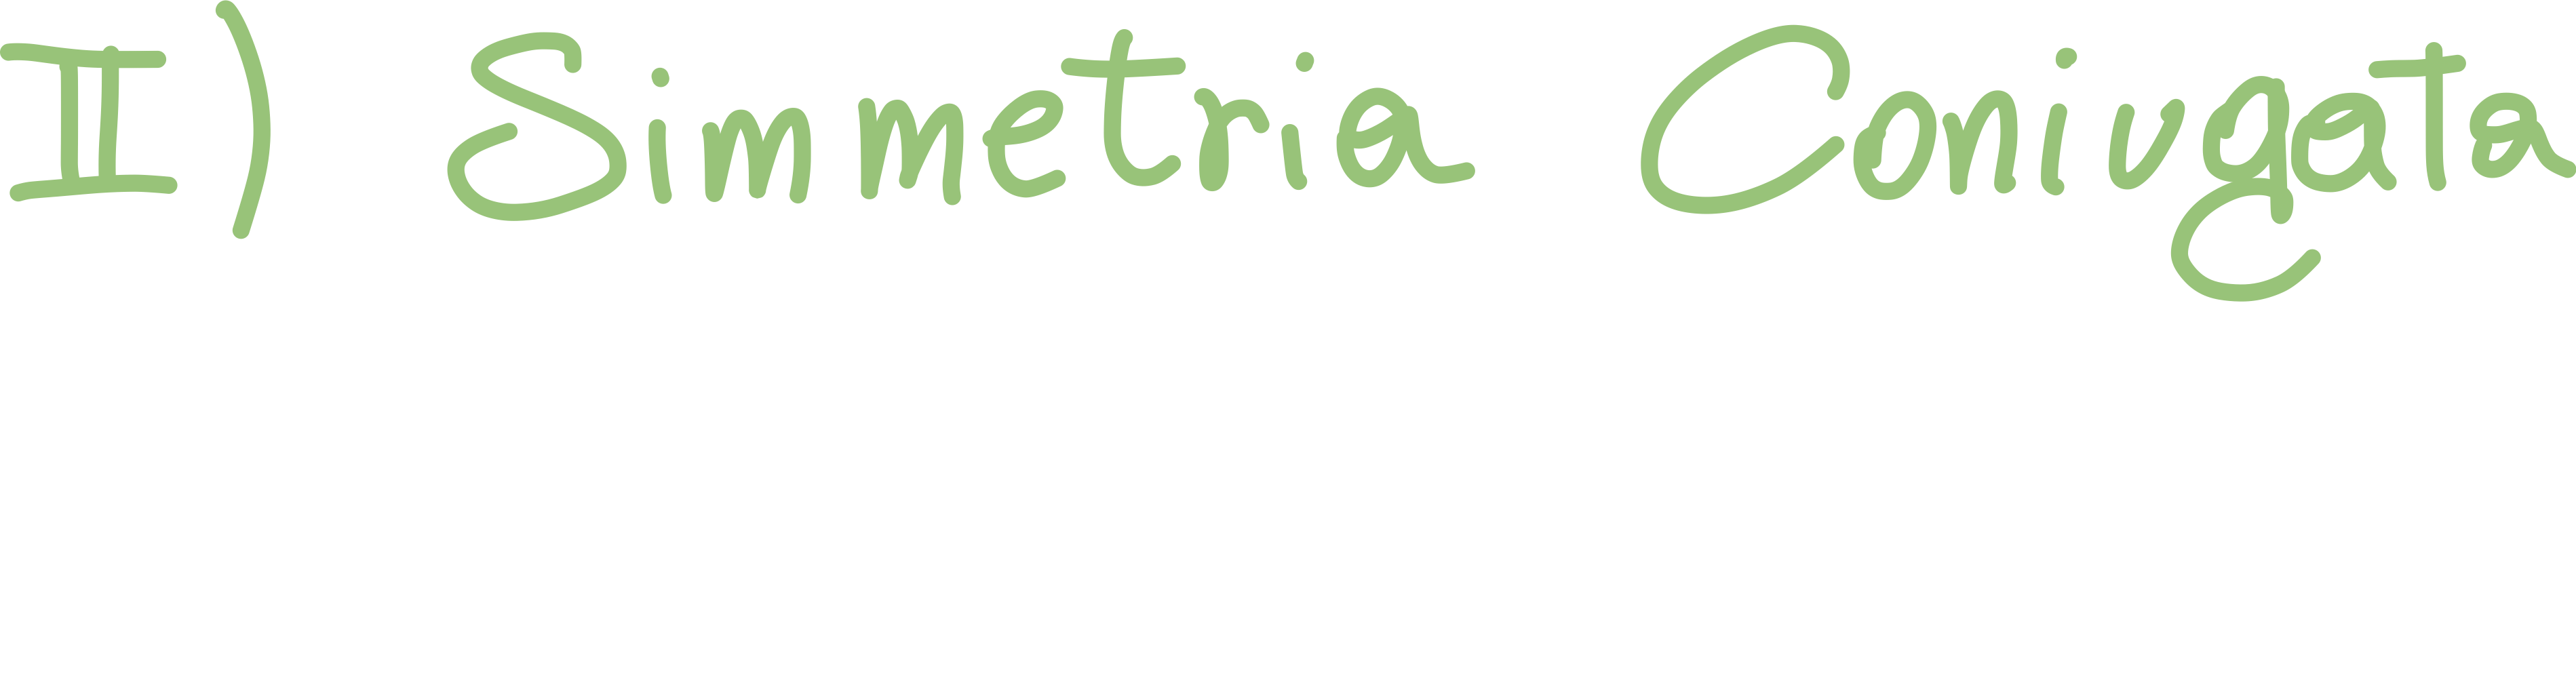 II) Simmetria Coniugata